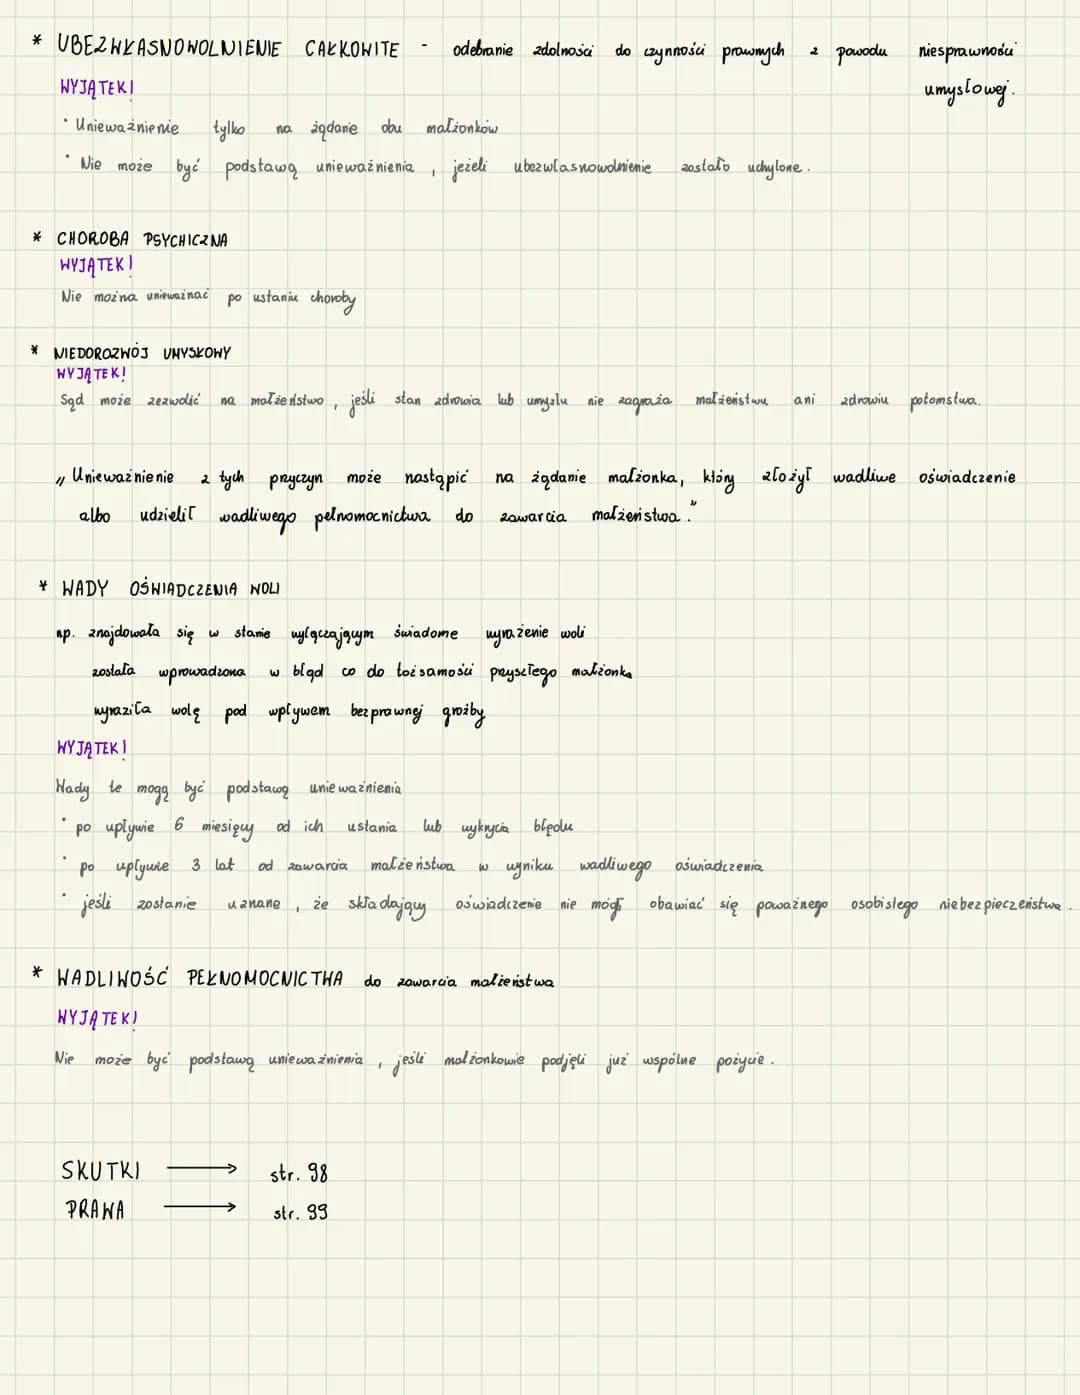 * UBEZWŁASNOWOLNIENIE CAŁKOWITE - odebranie zdolności do czynności prawnych z powodu niesprawności
umysłowej.
WYJĄTEK!
• Unieważnienie tylko na żądanie obu małżonków
• Nie może być podstawą unieważnienia, jeżeli ubezwłasnowolnienie zostało uchylone.
* CHOROBA PSYCHICZNA
WYJĄTEK!
Nie można unieważnać po ustaniu choroby
* NIEDOROZWÓJ UMYSŁOWY
WYJĄTEK!
Sąd może zezwolić na małżeństwo, jeśli stan zdrowia lub umysłu nie zagraża małżeństwu ani zdrowiu potomstwa.
„Unieważnienie z tych przyczyn może nastąpić na żądanie małżonka, który złożył wadliwe oświadczenie
albo udzielił wadliwego pełnomocnictwa do zawarcia małżeństwa."
* WADY OŚWIADCZENIA WOLI
np. znajdowała się w stanie wyłączającym świadome wyrażenie woli
została wprowadzona w błąd co do tożsamości przyszłego małżonka
wyraziła wolę pod wpływem bezprawnej groźby
WYJĄTEK!
Wady te mogą być podstawą unieważnienia
• po upływie 6 miesięcy od ich ustania lub wykrycia błędu
• po upływie 3 lat od zawarcia małżeństwa w wyniku wadliwego oświadczenia
• jeśli zostanie uznane, że składający oświadczenie nie mógł obawiać się poważnego osobistego niebezpieczeństwa.
* WADLIWOŚĆ PEŁNOMOCNICTWA do zawarcia małżeństwa
WYJĄTEK!
Nie może być podstawą unieważnienia, jeśli małżonkowie podjęli już wspólne pożycie.
SKUTKI ⟶ str. 98
PRAWA ⟶ str. 99